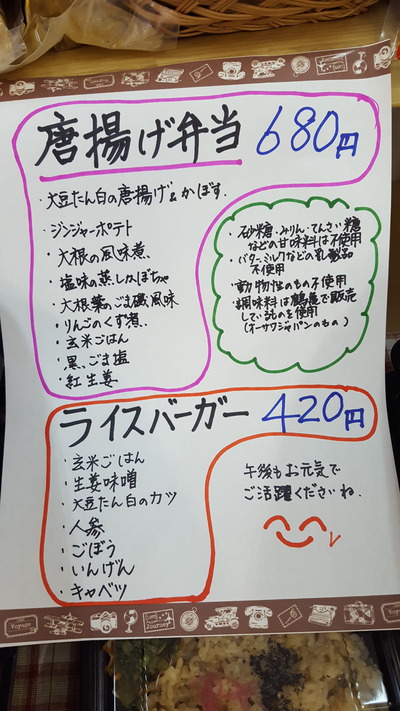 唐揚げ弁当 680円
・大豆たん白の唐揚げ&かぼす.
・ジンジャーポテト
・大根の風味煮、
・塩味の蒸しかぼちゃ
・大根葉のごま磯風味
・りんごのくず煮、
・玄米ごはん
・黒、ごま塩
・紅生姜
・砂糖・みりん・てんさい糖
などの甘味料は不使用
・バター、ミルクなどの乳製品
不使用
・動物性のもの不使用
・調味料は鶴亀で販売
しているものを使用
(オーサワジャパンのもの)
ライスバーガー 420円
・玄米ごはん
・生姜味噌
・大豆たん白のカツ
・人参
・ごぼう
・いんげん
・キャベツ
午後もお元気で
ご活躍くださいね.